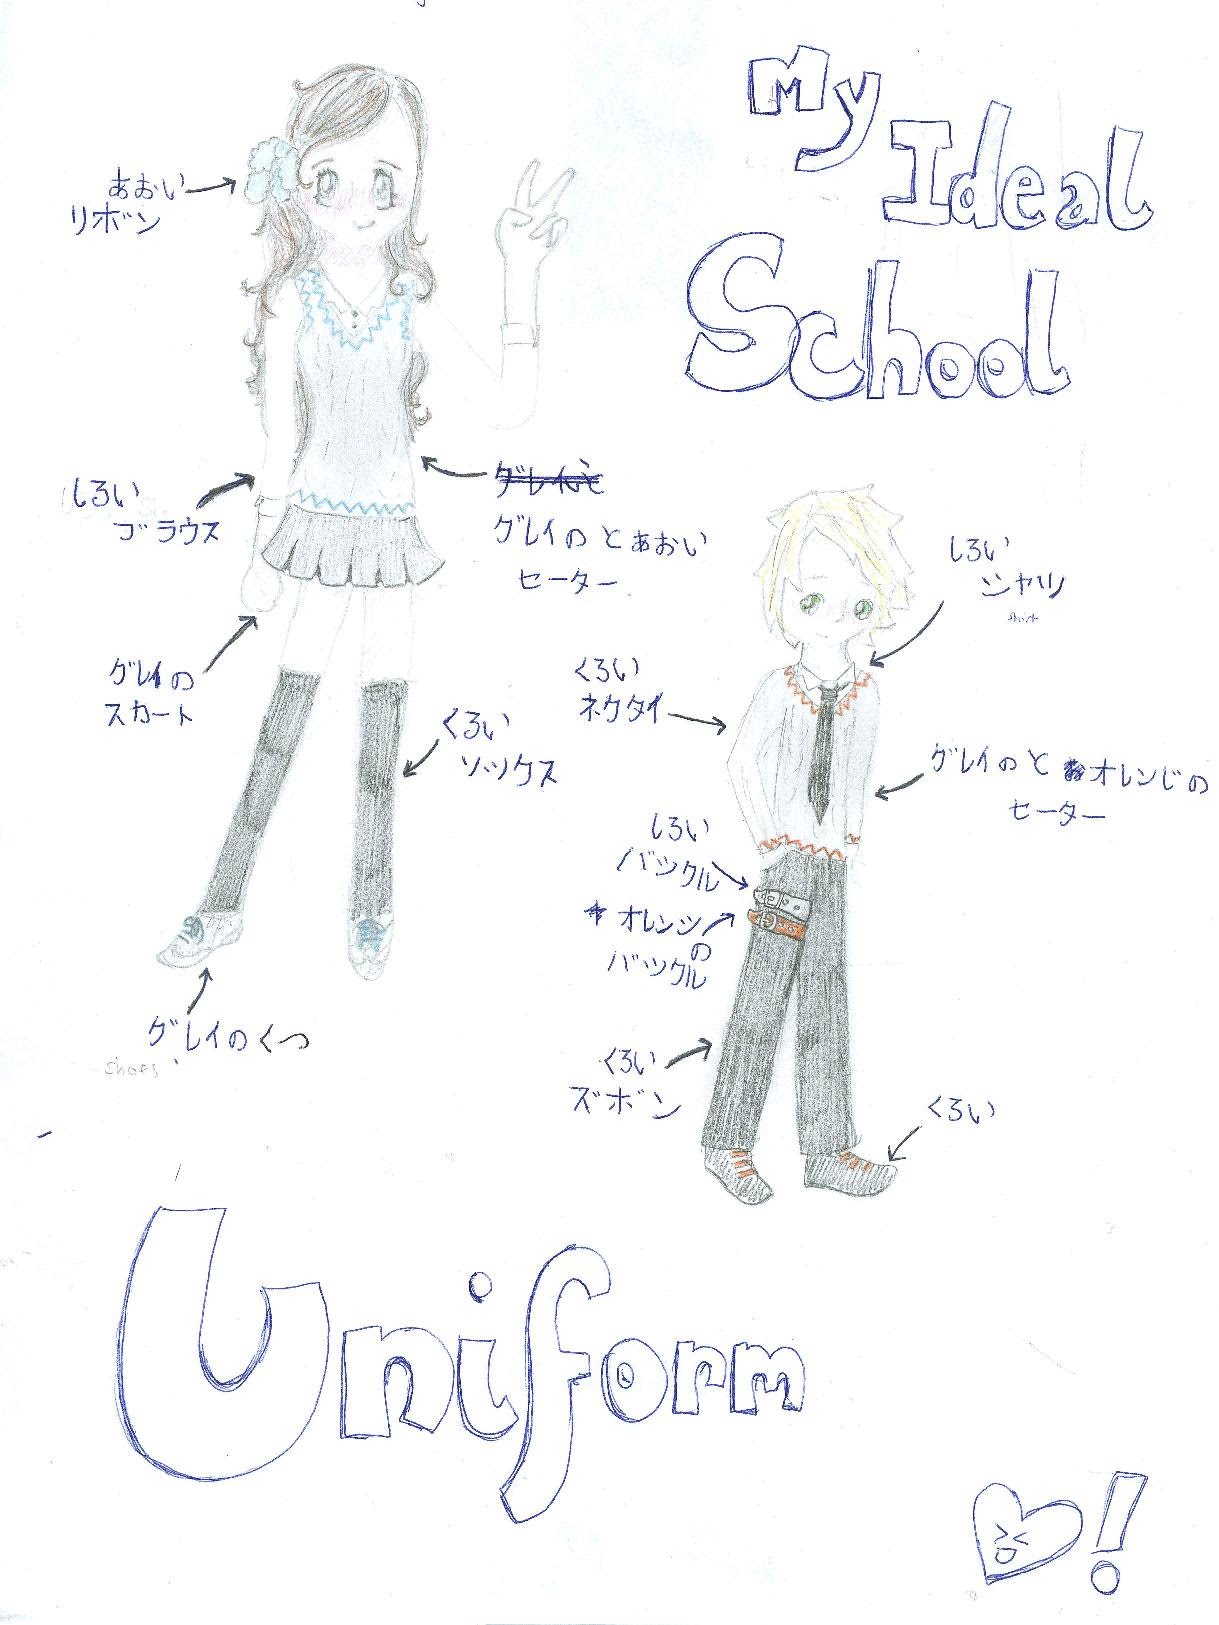 My
Ideal
School
あおい
リボン
しろい
ブラウス
グレイのとあおい
セーター
グレイの
スカート
くろい
ソックス
グレイのくつ
shoes
しろい
シャツ
shirt
くろい
ネクタイ
グレイのとオレンじの
セーター
しろい
バックル
オレンジ
の
バックル
くろい
ズボン
くろい
Uniform
!